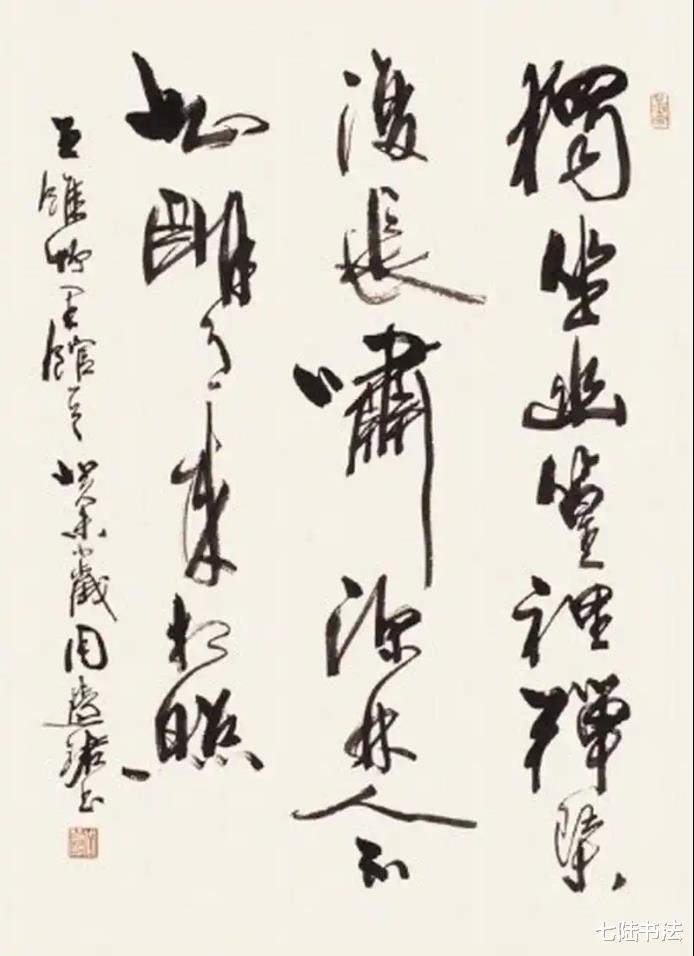 獨坐幽篁裡彈琹
復長嘯深林人不
知明月來相照
王維竹里館一首 癸未歲周慧珺书
七陆书法